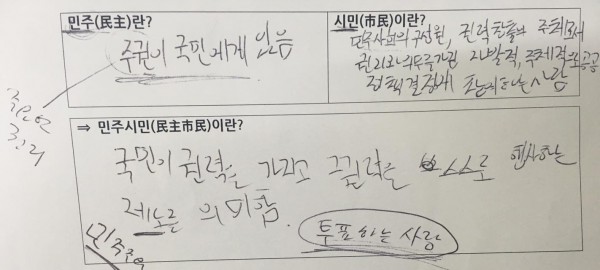 민주(民主)란?
주권이 국민에게 있음
시민(市民)이란?
민주사회의 구성원, 권력창출의 주체로서
권리와 의무를 가지고 자발적, 주체적으로 공공
정책결정에 참여하는 사람
⇒ 민주시민(民主市民)이란?
국민이 권력을 가지고 그 권력을 스스로 행사하는
제도를 의미함.
투표하는 사람